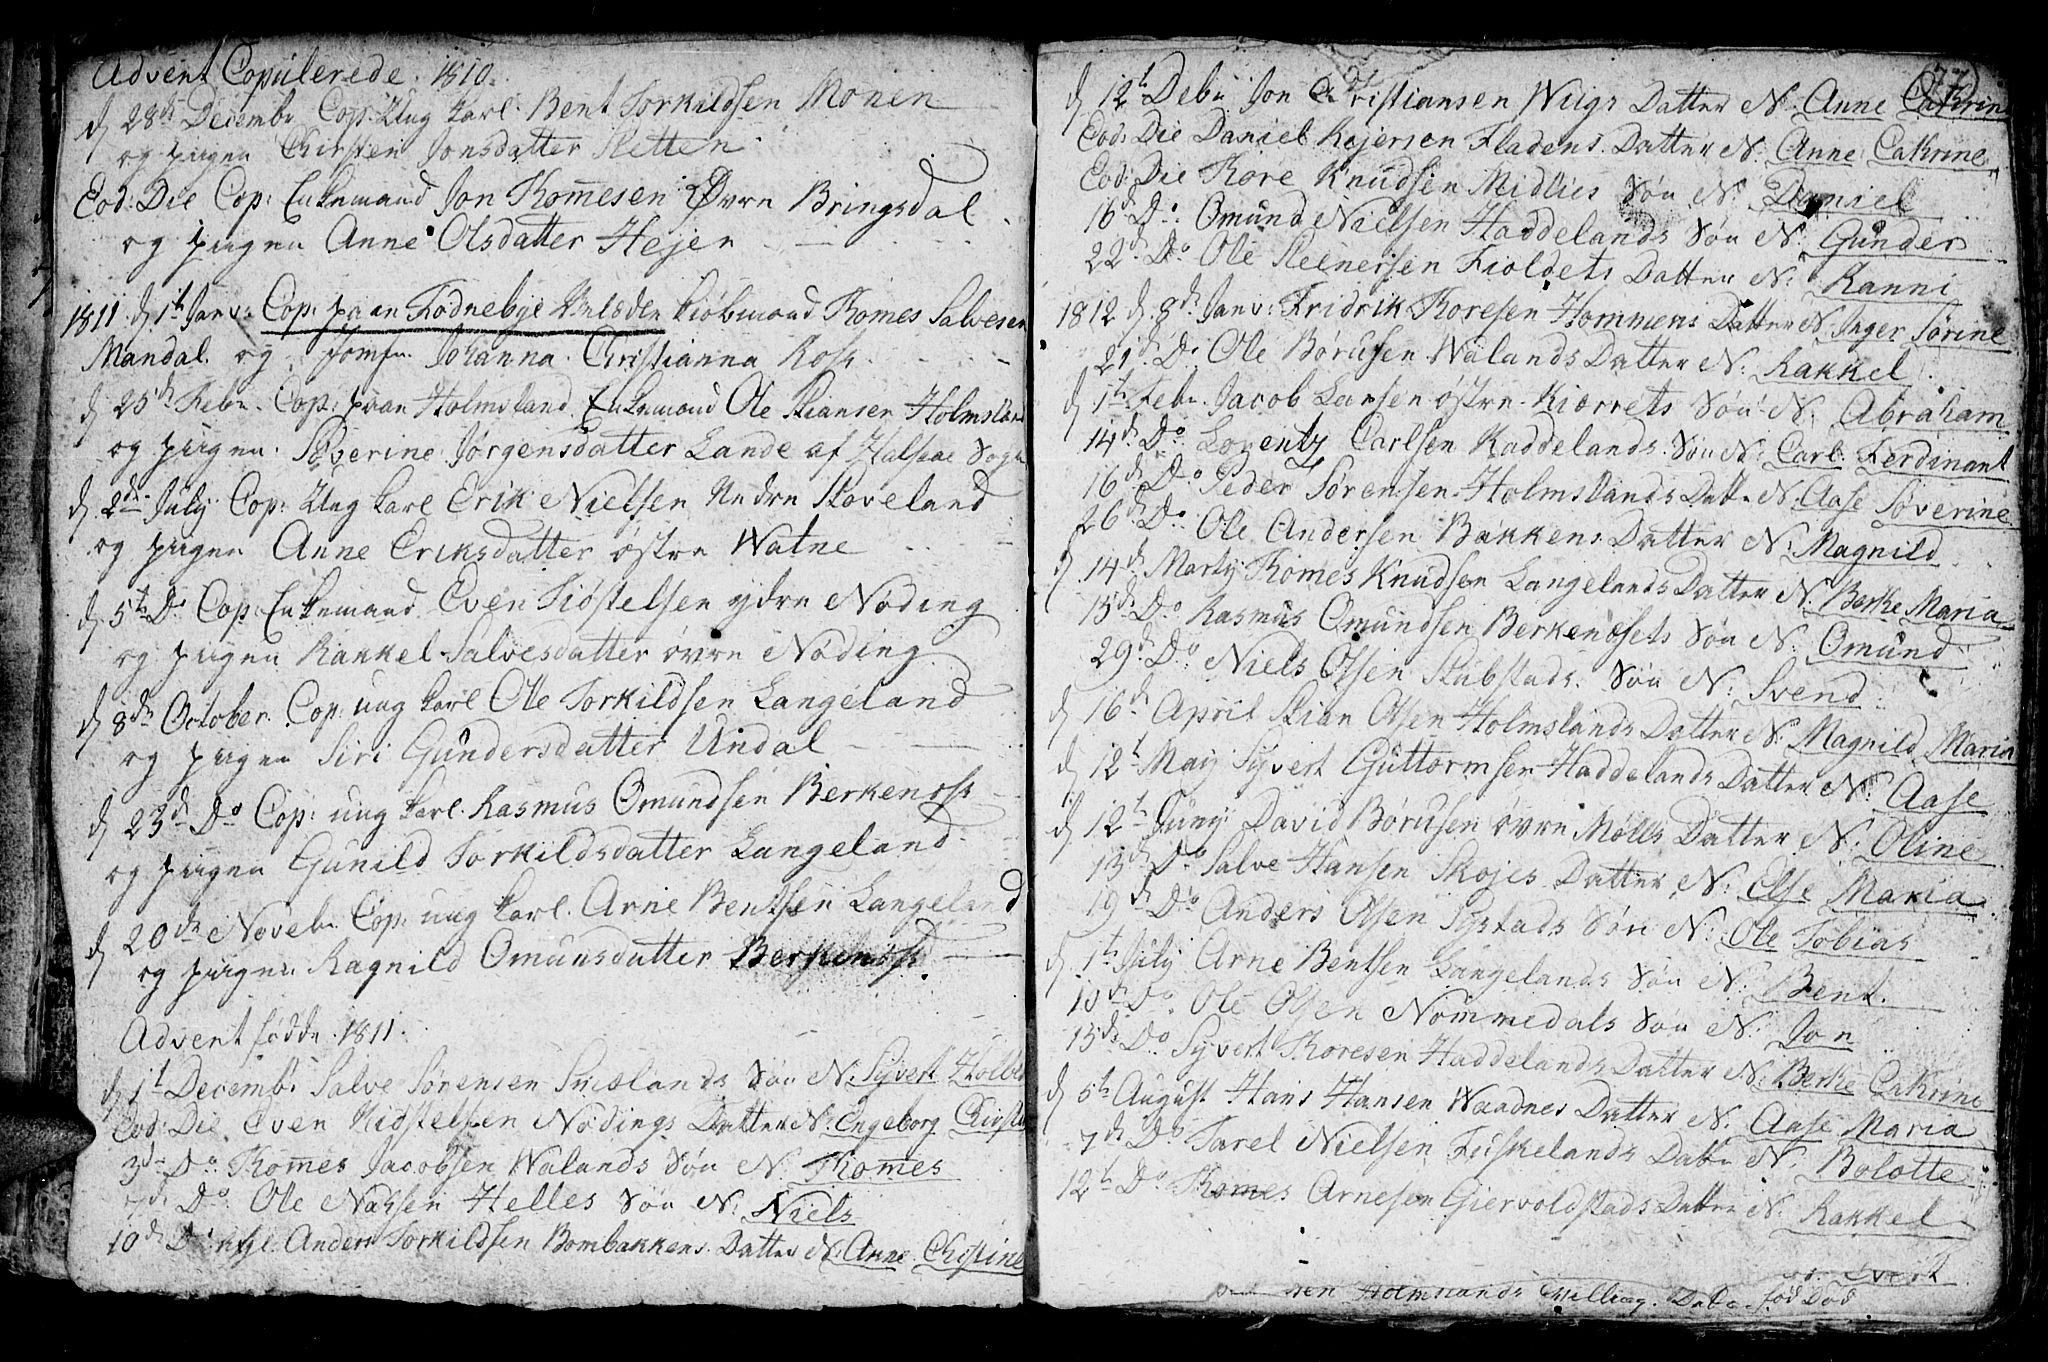 Advent Copulerede. 1810.
d 28de Decembr Cop: Ung karl Bent Torkildsen Monen
og pigen Chirsten Jonsdatter Sletten
Eod: Die Cop: Enkemand Jon Thomesen Øvre Bringsdal
og pigen Anne Olsdatter Hejen
1811. d 1t Janv: Cop: paa en Kiøbmand Thomes Salvesen
Mandal. og Jomfr. Johanna Christianna Ross.
d 25de Febr. Cop: paa Holmsland Enkemand Ole Stiansen Holmsland
og pigen Severine Jørgensdatter Lande af Halsaae Sogn
d 2den July Cop: Ung karl Erik Nielsen Nedre Skoveland
og pigen Anne Eriksdatter østre Watne
d 5te Do Cop: Enkemand Even Kiøstelsen ydre Nøding
og pigen Rakkel Salvesdatter øvre Nøding
d 8de October. Cop: ung karl Ole Torkildsen Langeland
og pigen Siri Gundersdatter Undal
d 23de Do Cop: ung karl. Rasmus Omundsen Berkenøss
og pigen Gunild Torkildsdatter Langeland
d 20de Novebr Cop: ung karl. Arne Bentsen Langeland
og pigen Ragnild Omunsdatter Berkenøss
Advent fødde. 1811.
d 1t Decemb: Salve Sørensen Smelands Søn N: Syvert
Eod: Die Even Kiøstelsen Nødings Datter N: Engeborg
3de Do Thomes Jacobsen Walands Søn N: Thomes
7de Do Ole Helles Søn N: Niels
10de Do Anders Torkildsen Bombakkens Datter N: Anne Christine
77
d 12t Debr Jon Christiansen Wiigs Datter N: Anne Cathrine
Eod: Die Daniel Rejersen Fladens Datter N: Anne Cathrine
Eod: Die Thore Knudsen Midlies Søn N: Daniel
16de Do Omund Nielsen Haddelands Søn N: Gunder
22de Do Ole Reinersen Fioldets Datter N: Ranni
1812 d. 8de Janv: Fridrik Thoresen Hommens Datter N: Inger Tørine
21de Do Ole Børusen Walands Datter N: Rakkel
d 1te Febr. Jacob Larsen østre Kiærrets Søn N: Abraham
14de Do Lorentz Carlsen Raddelands Søn N: Carl Ferdinant
16de Do Peder Sørensen Holmslands Datr N: Aase Søverine
26de Do Ole Andersen Bakkens Datter N: Magnild
d 14de Marty Thomes Knudsen Langelands Datter N: Berthe Maria
15de Do Rasmus Omundsen Berkenøsets Søn N: Omund
29de Do Niels Olsen Stubstads Søn N: Svend
d 16de April Stian Olsen Holmslands Datter N: Magnild Maria
d 12t May Syvert Guttormsen Haddelands Datter N: Aase
d 12t Juny David Børusen øvre Mølls Datter N: Oline
13de Do Salve Hansen Skojes Datter N: Else Maria
19de Do Anders Olsen Systads Søn N: Ole Tobias
d 1te July Arne Bentsen Langelands Søn N: Bent.
10de Do Ole Olsen Nommedals Søn N: Jon
15de Do Syvert Thoresen Haddelands Datter N: Berthe Cathrine
d 5te August Hans Hansen Waadnes Datter N: Aase Maria
7de Do Tarel Nielsen Fuskelands Datr N: Bolotte
12te Do Thomes Arnesen Giervoldstads Datter N: Rakkel
Holmslands Tvilling død